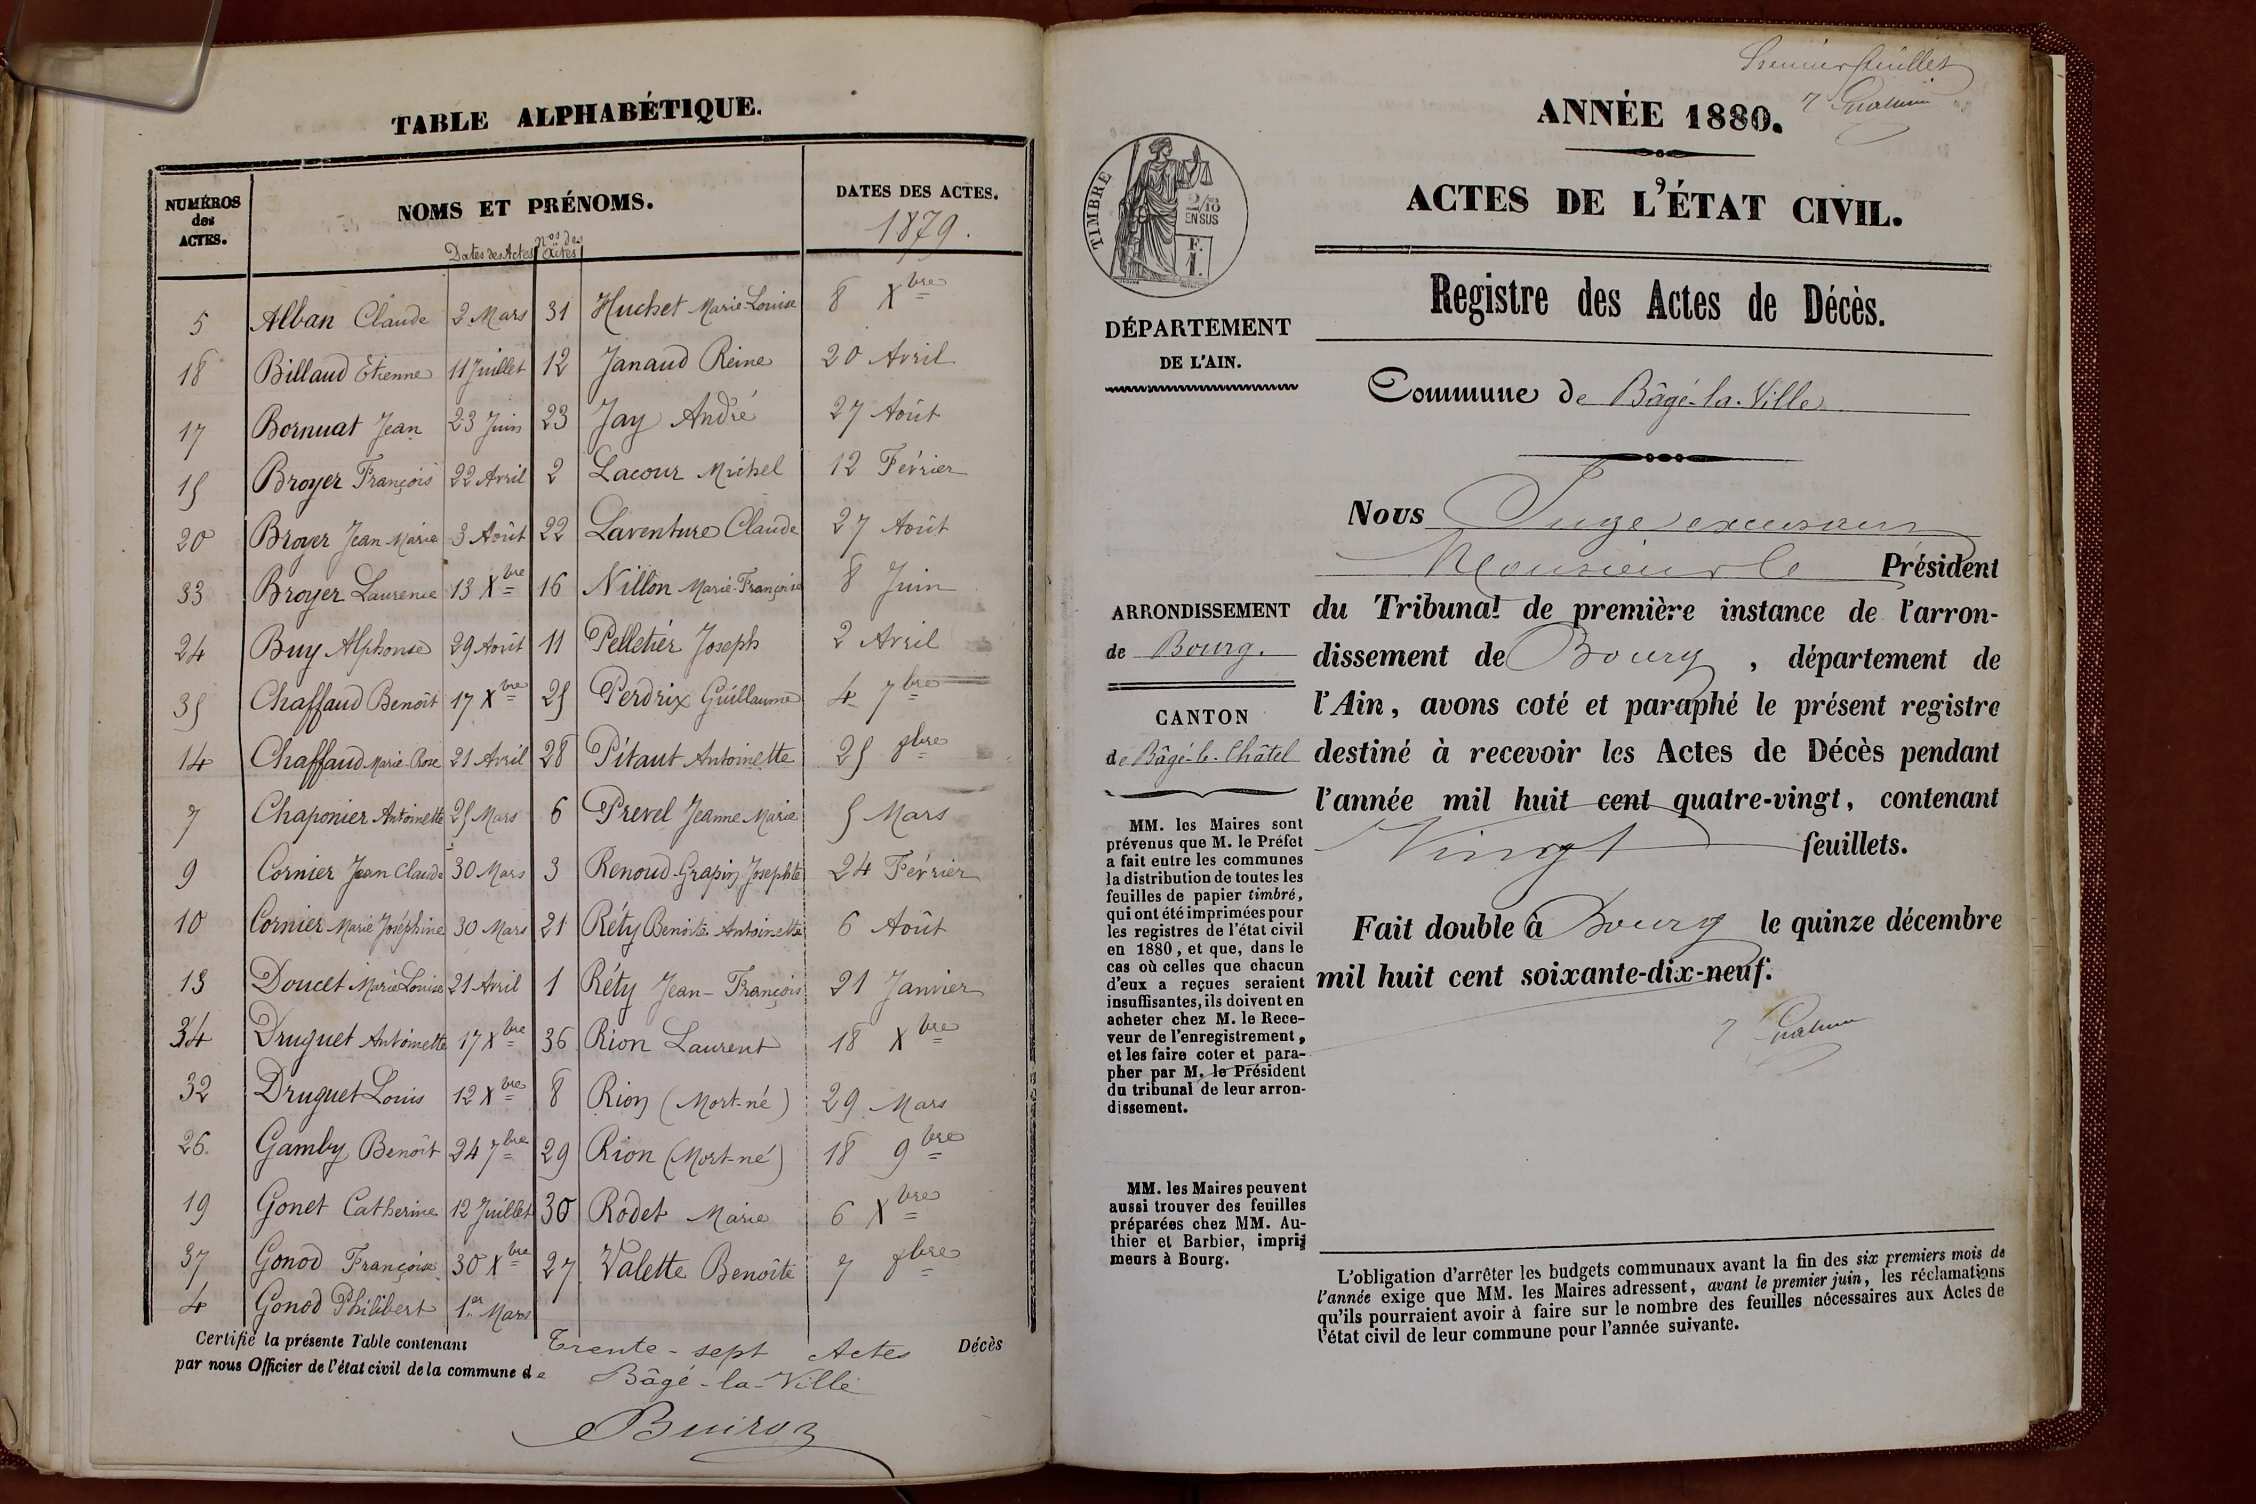 TABLE ALPHABÉTIQUE.
NUMÉROS des ACTES.
NOMS ET PRÉNOMS.
DATES DES ACTES.
1879.
Dates des Actes
Nos des Actes
5 Alban Claude 2 Mars 31 Huchet Marie-Louise 8 Xbre
18 Billaud Etienne 11 Juillet 12 Janaud Reine 20 Avril
17 Bornuat Jean 23 Juin 23 Jay André 27 Août
15 Broyer François 22 Avril 2 Lacour Michel 12 Février
20 Broyer Jean Marie 3 Août 22 Laventure Claude 27 Août
33 Broyer Laurence 13 Xbre 16 Nillon Marie-Françoise 8 Juin
24 Buy Alphonse 29 Août 11 Pelletier Joseph 2 Avril
35 Chaffaud Benoît 17 Xbre 25 Perdrix Guillaume 4 7bre
14 Chaffaud Marie-Rose 21 Avril 28 Pitaut Antoinette 25 8bre
7 Chaponier Antoinette 25 Mars 6 Prevel Jeanne Marie 5 Mars
9 Cornier Jean Claude 30 Mars 3 Renoud-Grapin Josephte 24 Février
10 Cornier Marie Joséphine 30 Mars 21 Réty Benoite Antoinette 6 Août
13 Doucet Marie Louise 21 Avril 1 Réty Jean-François 21 Janvier
34 Druguet Antoinette 17 Xbre 36 Rion Laurent 18 Xbre
32 Druguet Louis 12 Xbre 8 Rion (Mort-né) 29 Mars
26. Gamby Benoît 24 7bre 29 Rion (Mort-né) 18 9bre
19 Gonet Catherine 12 Juillet 30 Rodet Marie 6 Xbre
37 Gonod Françoise 30 Xbre 27 Valette Benoîte 7 8bre
4 Gonod Philibert 1er Mars
Certifié la présente Table contenant Trente-sept Actes Décès
par nous Officier de l'état civil de la commune de Bâgé-la-Ville
Buiron
Premier feuillet
ANNÉE 1880.
ACTES DE L'ÉTAT CIVIL.
TIMBRE
2/10
EN SUS
F.
1.
Registre des Actes de Décès.
DÉPARTEMENT
DE L'AIN.
Commune de Bâgé-la-Ville
Nous Juge
Monsieur le Président
du Tribunal de première instance de l'arron-
dissement de Bourg, département de
l'Ain, avons coté et paraphé le présent registre
destiné à recevoir les Actes de Décès pendant
l'année mil huit cent quatre-vingt, contenant
Vingt feuillets.
Fait double à Bourg le quinze décembre
mil huit cent soixante-dix-neuf.
ARRONDISSEMENT
de Bourg.
CANTON
de Bâgé-le-Châtel
MM. les Maires sont
prévenus que M. le Préfet
a fait entre les communes
la distribution de toutes les
feuilles de papier timbré,
qui ont été imprimées pour
les registres de l'état civil
en 1880, et que, dans le
cas où celles que chacun
d'eux a reçues seraient
insuffisantes, ils doivent en
acheter chez M. le Rece-
veur de l'enregistrement,
et les faire coter et para-
pher par M. le Président
du tribunal de leur arron-
dissement.
MM. les Maires peuvent
aussi trouver des feuilles
préparées chez MM. Au-
thier et Barbier, impri-
meurs à Bourg.
L'obligation d'arrêter les budgets communaux avant la fin des six premiers mois de
l'année exige que MM. les Maires adressent, avant le premier juin, les réclamations
qu'ils pourraient avoir à faire sur le nombre des feuilles nécessaires aux Actes de
l'état civil de leur commune pour l'année suivante.